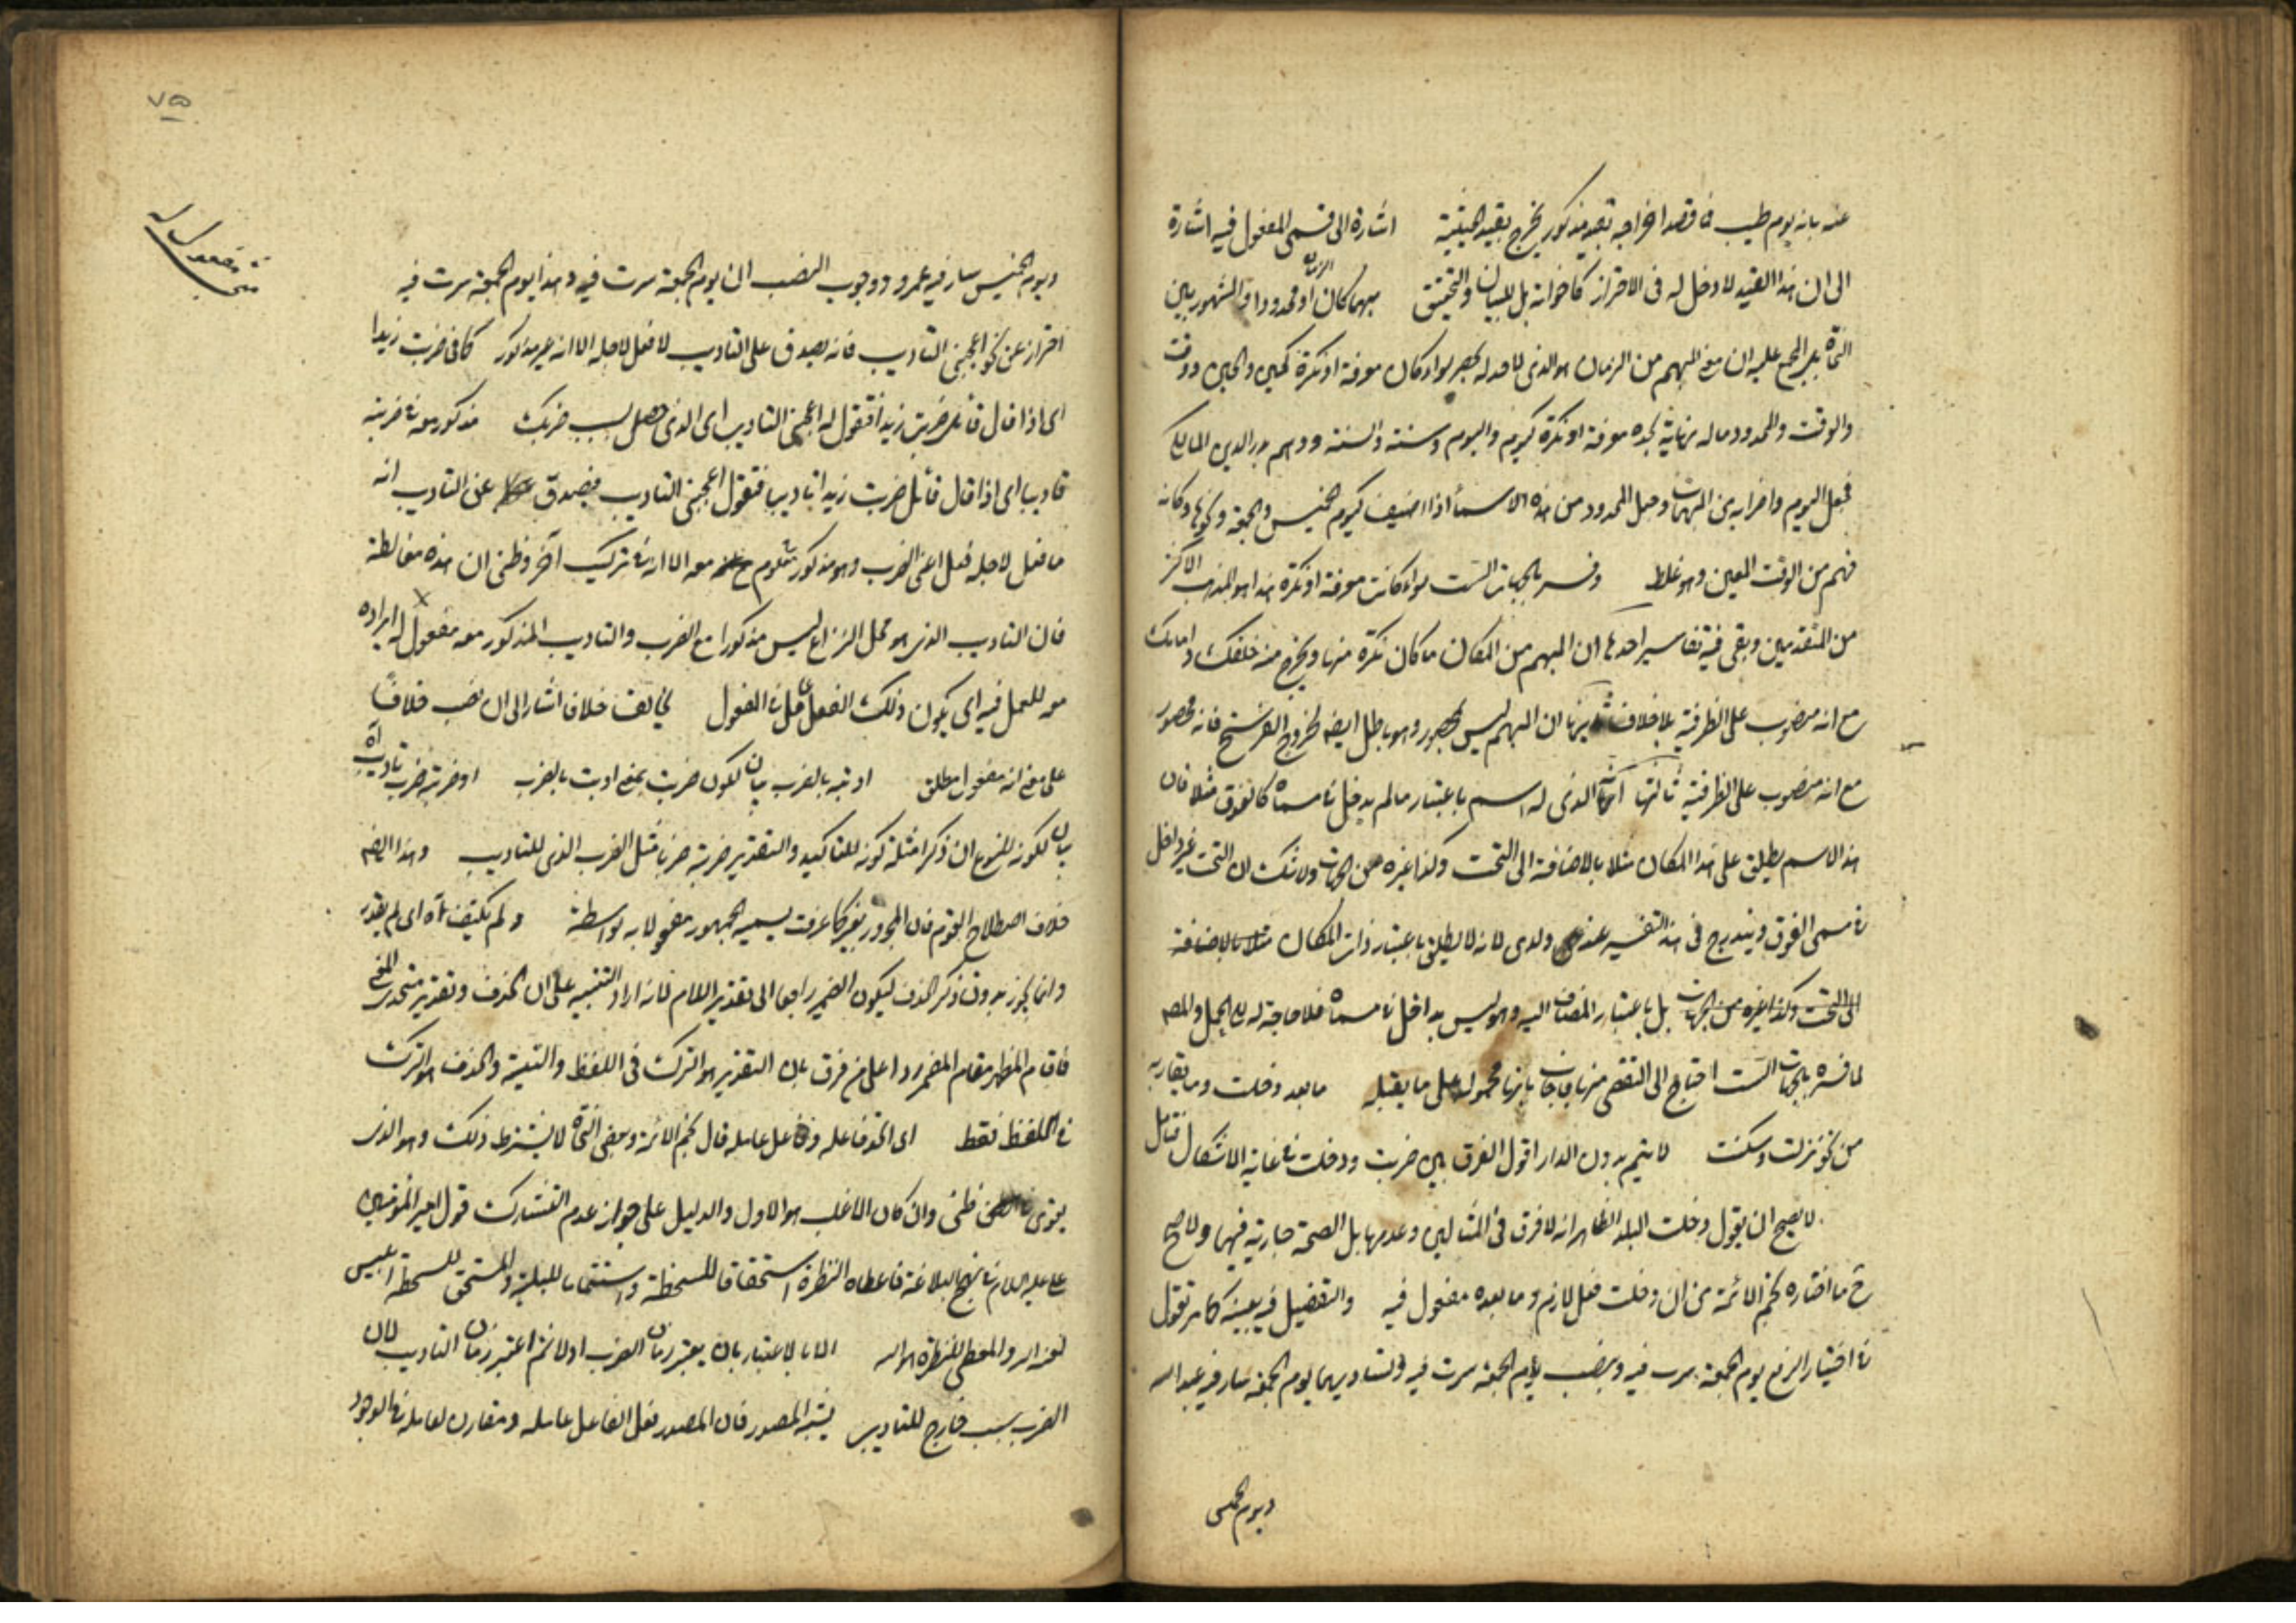 عنه بانه يوم طيب فما قصد اخراجه بقيد مذكور يخرج بقيد الحيثية اشارة الى قسمى المفعول فيه اشارة
الى ان هذا القيد لا دخل له فى الاحتراز كاخواته بل للبيان والتحقيق مبهما كان الزمان او محدودا المشهور بين
النحاة ان المبهم من الزمان هو الذى لا حد له يحصره سواء كان معرفة او نكرة كحين والحين ووقت
والوقت والمحدود ماله نهاية تحده معرفة او نكرة كيوم واليوم وسنة والسنة ووهم بدر الدين المالكى
فجعل اليوم واضرابه من المبهمات وجعل المحدود من هذه الاسماء اذا اضيف كيوم الخميس والجمعة ونحوها وكانه
فهم من الوقت المعين وهو غلط وفسر بالجهات الست سواء كانت معرفة او نكرة هذا هو المذهب الاكثر
من المتقدمين وبقى فيه تفاسير احدها ان المبهم من المكان ما كان نكرة منها ويخرج منه خلفك وامامك
مع انه منصوب على الظرفية بلا خلاف ثانيها ان المبهم ليس بمحصور وهو باطل ايضا لخروج الفرسخ فانه محصور
مع انه منصوب على الظرفية ثالثها انه الذى له اسم باعتبار ما لم يدخل فى مسماه كالفوق مثلا فان
هذا الاسم يطلق على هذا المكان مثلا بالاضافة الى التحت وكذا غيره من الجهات ولا شك ان التحت غير داخل
فى مسمى الفوق ويندرج فى هذا التفسير عند ولدى لانه لا يطلق باعتبار ذات المكان مثلا بالاضافة
الى التحت وكذا غيره من الجهات بل باعتبار المضاف اليه وهو ليس بداخل فى مسماه فلا حاجة له الى الحمل والمص
لما فسره بالجهات الست احتاج الى التفصى منها فاجاب بانها محمولة على ما يقبله ما بعد دخلت وما يقاربه
من نحو نزلت وسكنت لا يتم بدون الدار اقول الفرق بين ضربت ودخلت فى غاية الاشكال فتامل
لا يصح ان يقول دخلت البلد الظاهر انه لا فرق فى المثالين وعدمها بل الصحة جارية فيهما ولا يصح
ح ما اختاره نجم الائمة من ان دخلت فعل لازم وما بعده مفعول فيه والتفصيل فيه بعينه كما مر تقول
فى اختيار الرفع يوم الجمعة سرت فيه وبنصب يوم الجمعة سرت فيه وتساويهما يوم الجمعة سار فيه عبد الله
ويوم الخميس
٧٥
ويوم الخميس سار فيه عمرو ووجوب النصب ان يوم الجمعة سرت فيه وهذا يوم الجمعة سرت فيه
احتراز عن نحو اعجبنى التاديب فانه يصدق على التاديب لا فعل لاجله الا انه غير مذكور كما فى ضربت زيدا
اى اذا قال قائل ضربت زيدا فتقول له اعجبنى التاديب اى الذى حصل بسبب ضربك مذكور معه فى ضربته
تاديبا اى اذا قال قائل ضربت زيدا تاديبا فتقول اعجبنى التاديب فيصدق على التاديب انه
ما فعل لاجله فعل اعنى الضرب وهو مذكور معه الا انه فى تركيب آخر وظنى ان هذه مغالطة
فان التاديب الذى هو محل النزاع ليس مذكورا مع الضرب والتاديب المذكور معه مفعول له ايراده
معه للعمل فيه اى يكون ذلك الفعل عاملا فى المفعول يخالف خلافا اشار الى ان نصب خلافا
على معنى انه مفعول مطلق ادبته بالضرب بيان لكون ضربت بمعنى ادبت بالضرب او ضربته ضرب تاديب اه
بيان لكونه للنوع ان ذكر امثلة كونه للتاكيد والتقدير ضربته ضربا مثل الضرب الذى للتاديب وهذا ايضا
خلاف اصطلاح القوم فان المجرور بغير كما عرفت يسميه الجمهور مفعولا به بواسطة ولم يكتف اه اى لم يقدر
وانما يجوز بدون ذكر الحذف ليكون الضمير راجعا الى تقدير اللام لانه اراد التنبيه على ان الحذف وتقدير متحدى المعنى
فاقام المظهر مقام المضمر ردا على من فرق بان التقدير هو الترك فى اللفظ والنية والحذف هو الترك
فى اللفظ فقط اى اتحد فاعله وفاعل عامله قال نجم الائمة وبعض النحاة لا يشترط ذلك وهو الذى
يقوى فى ظنى وان كان الاغلب هو الاول والدليل على جواز عدم التشارك قول امير المؤمنين
على عليه السلام فى نهج البلاغة فاعطاه النظرة استحقاقا للسخطة واستتماما للبلية والمستحق للسخطة ابليس
لعنه الله والمعطى للنظرة هو الله الا بالاعتبار بان يعتبر زمان الضرب اولا ثم اعتبر زمان التاديب لان
الضرب سبب خارج للتاديب يشبه المصدر فان المصدر فعل الفاعل عامله ومقارن لعامله فى الوجود